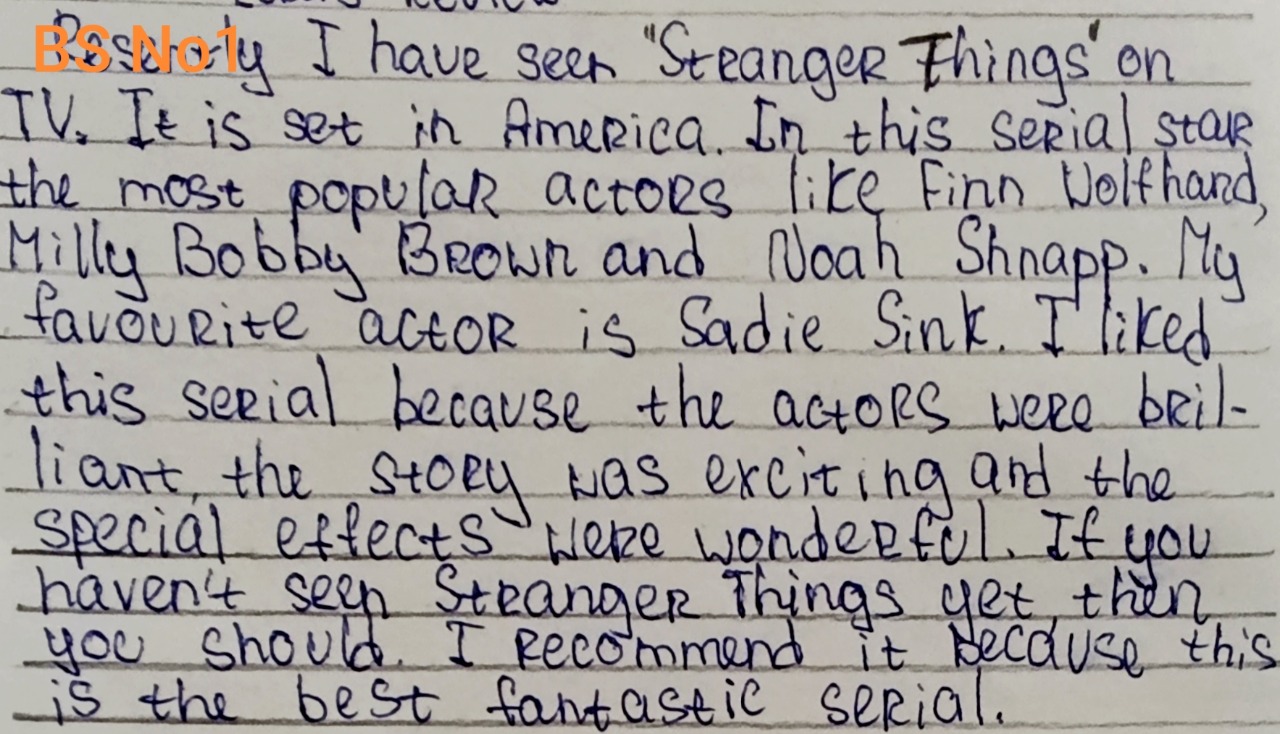 BS No1
I have seen "Stranger Things" on
TV. It is set in America. In this serial star
the most popular actors like Finn Wolfhard,
Milly Bobby Brown and Noah Shnapp. My
favourite actor is Sadie Sink. I liked
this serial because the actors were bril-
liant, the story was exciting and the
special effects were wonderful. If you
haven't seen Stranger Things yet then
you should. I recommend it because this
is the best fantastic serial.